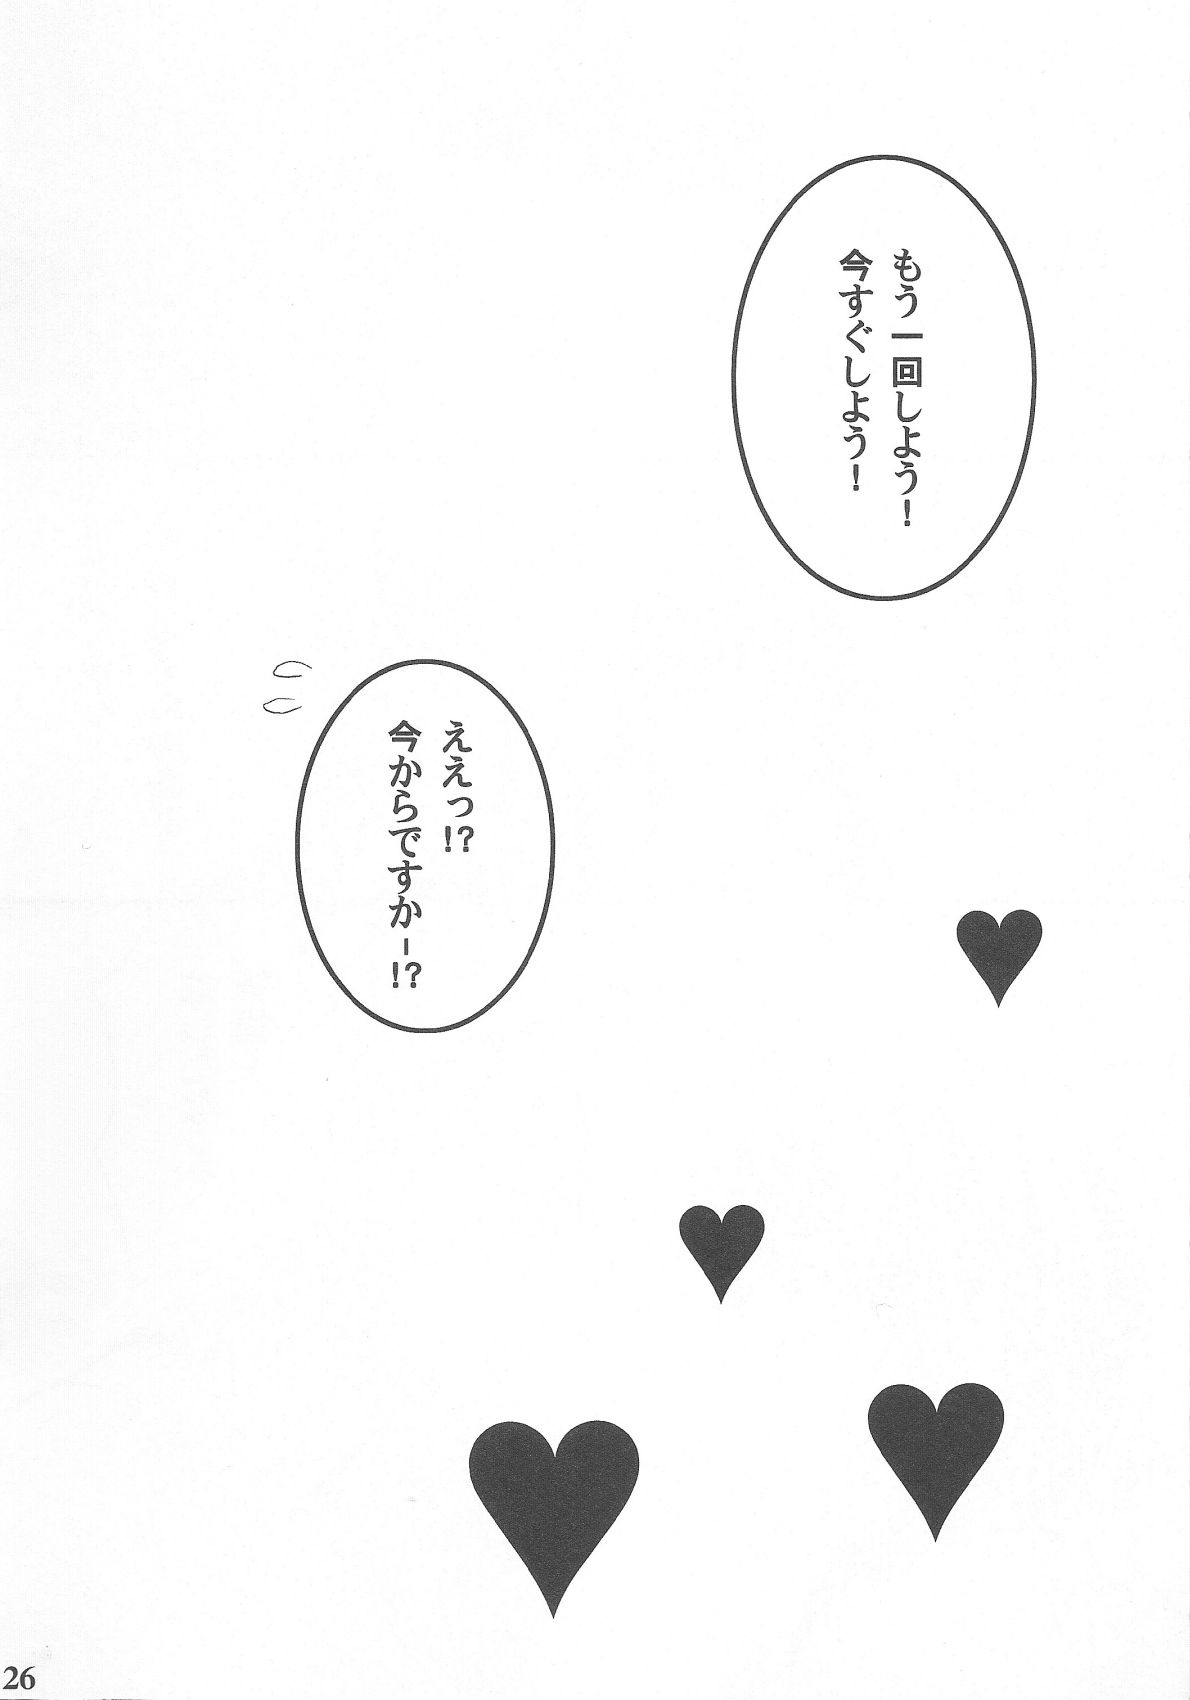 もう一回しよう！
今すぐしよう！
ええっ!?
今からですかー!?
26